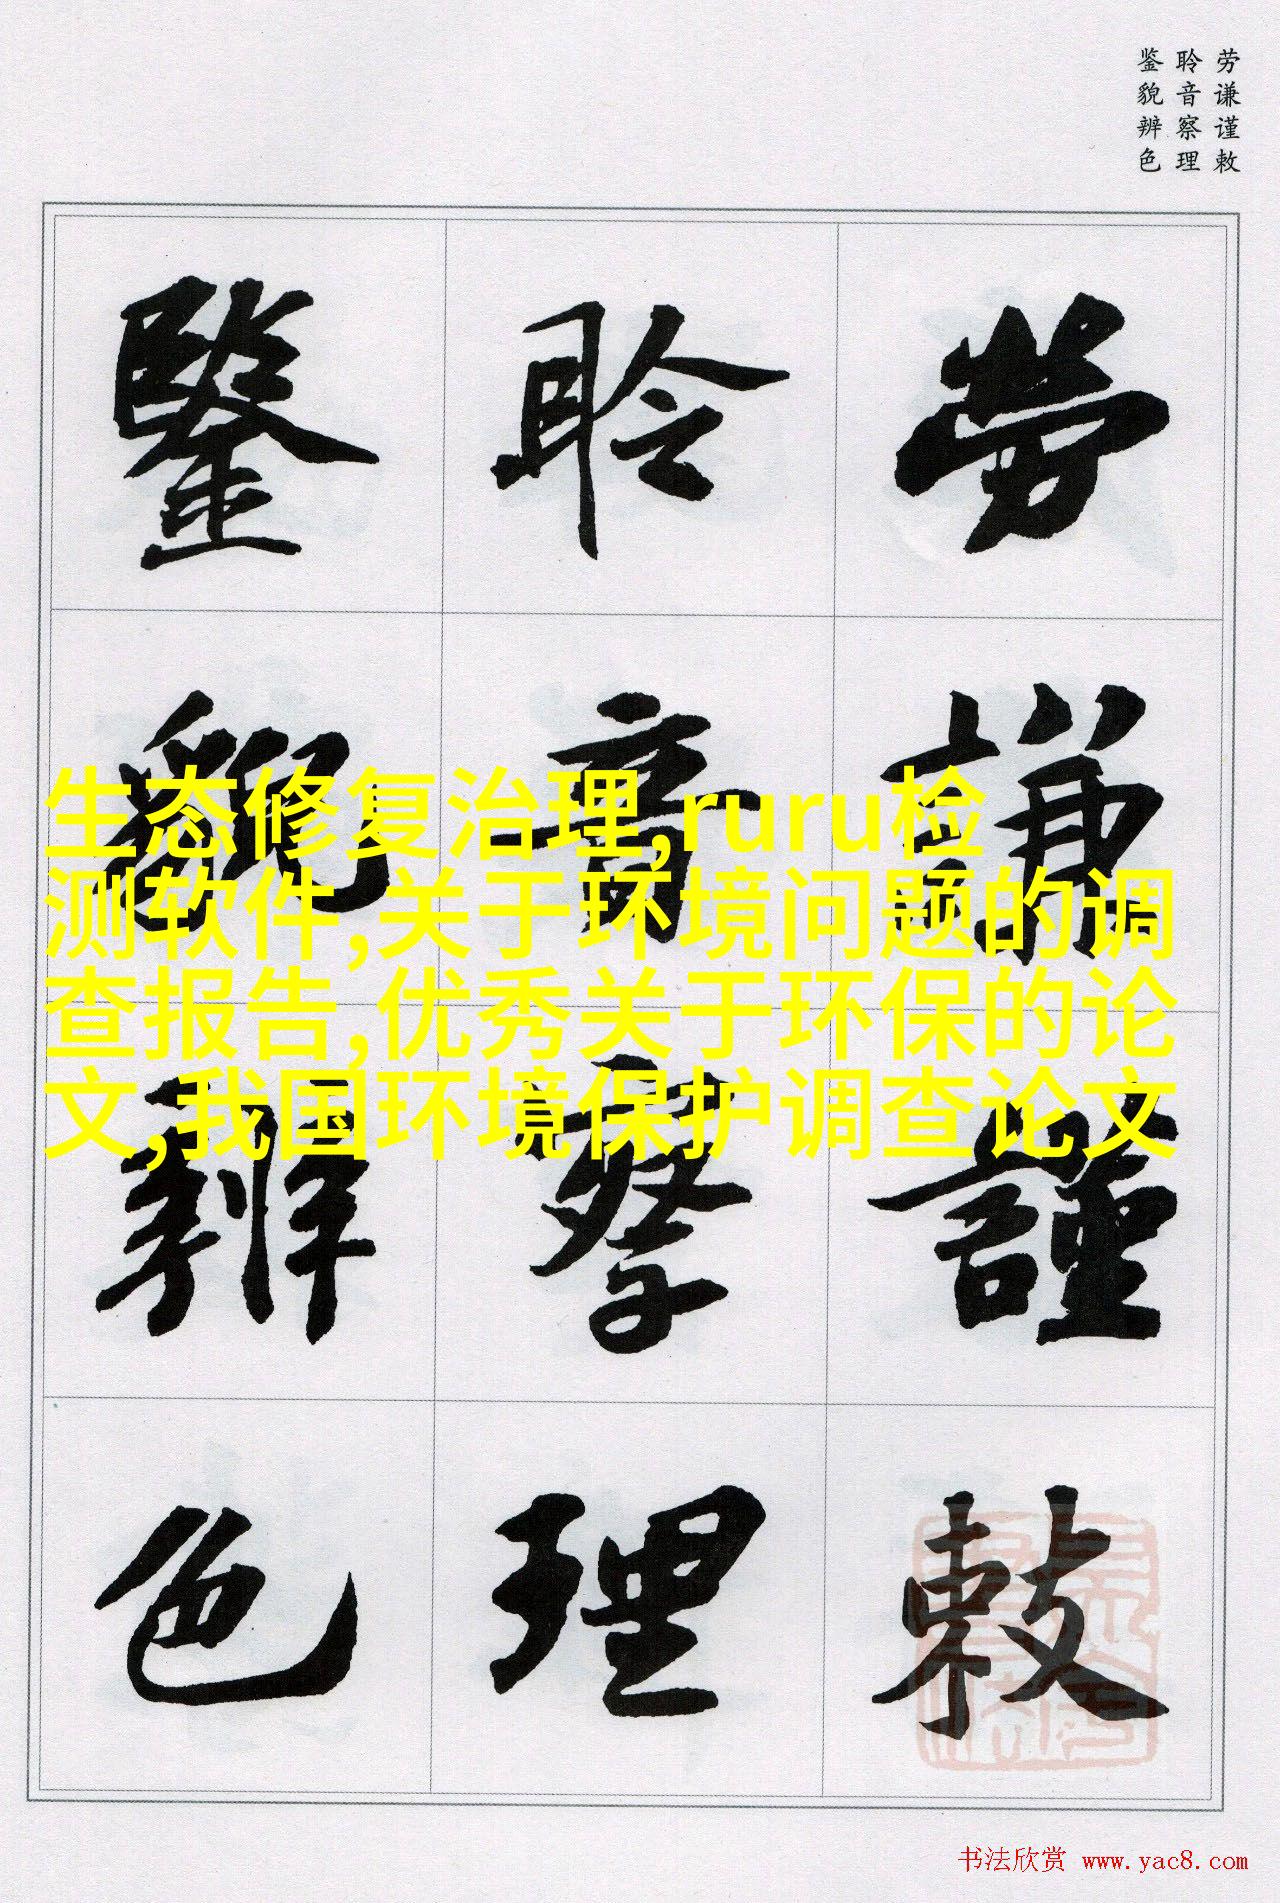 劳谦谨敕
聆音察理
鉴貌辨色
勞謙謹敕
聆音察理
鑒貌辨色
生态修复治理,ruru检
测软件,关于环境问题的调
查报告,优秀关于环保的论
文,我国环境保护调查论文
书法欣赏 www.yac8.com